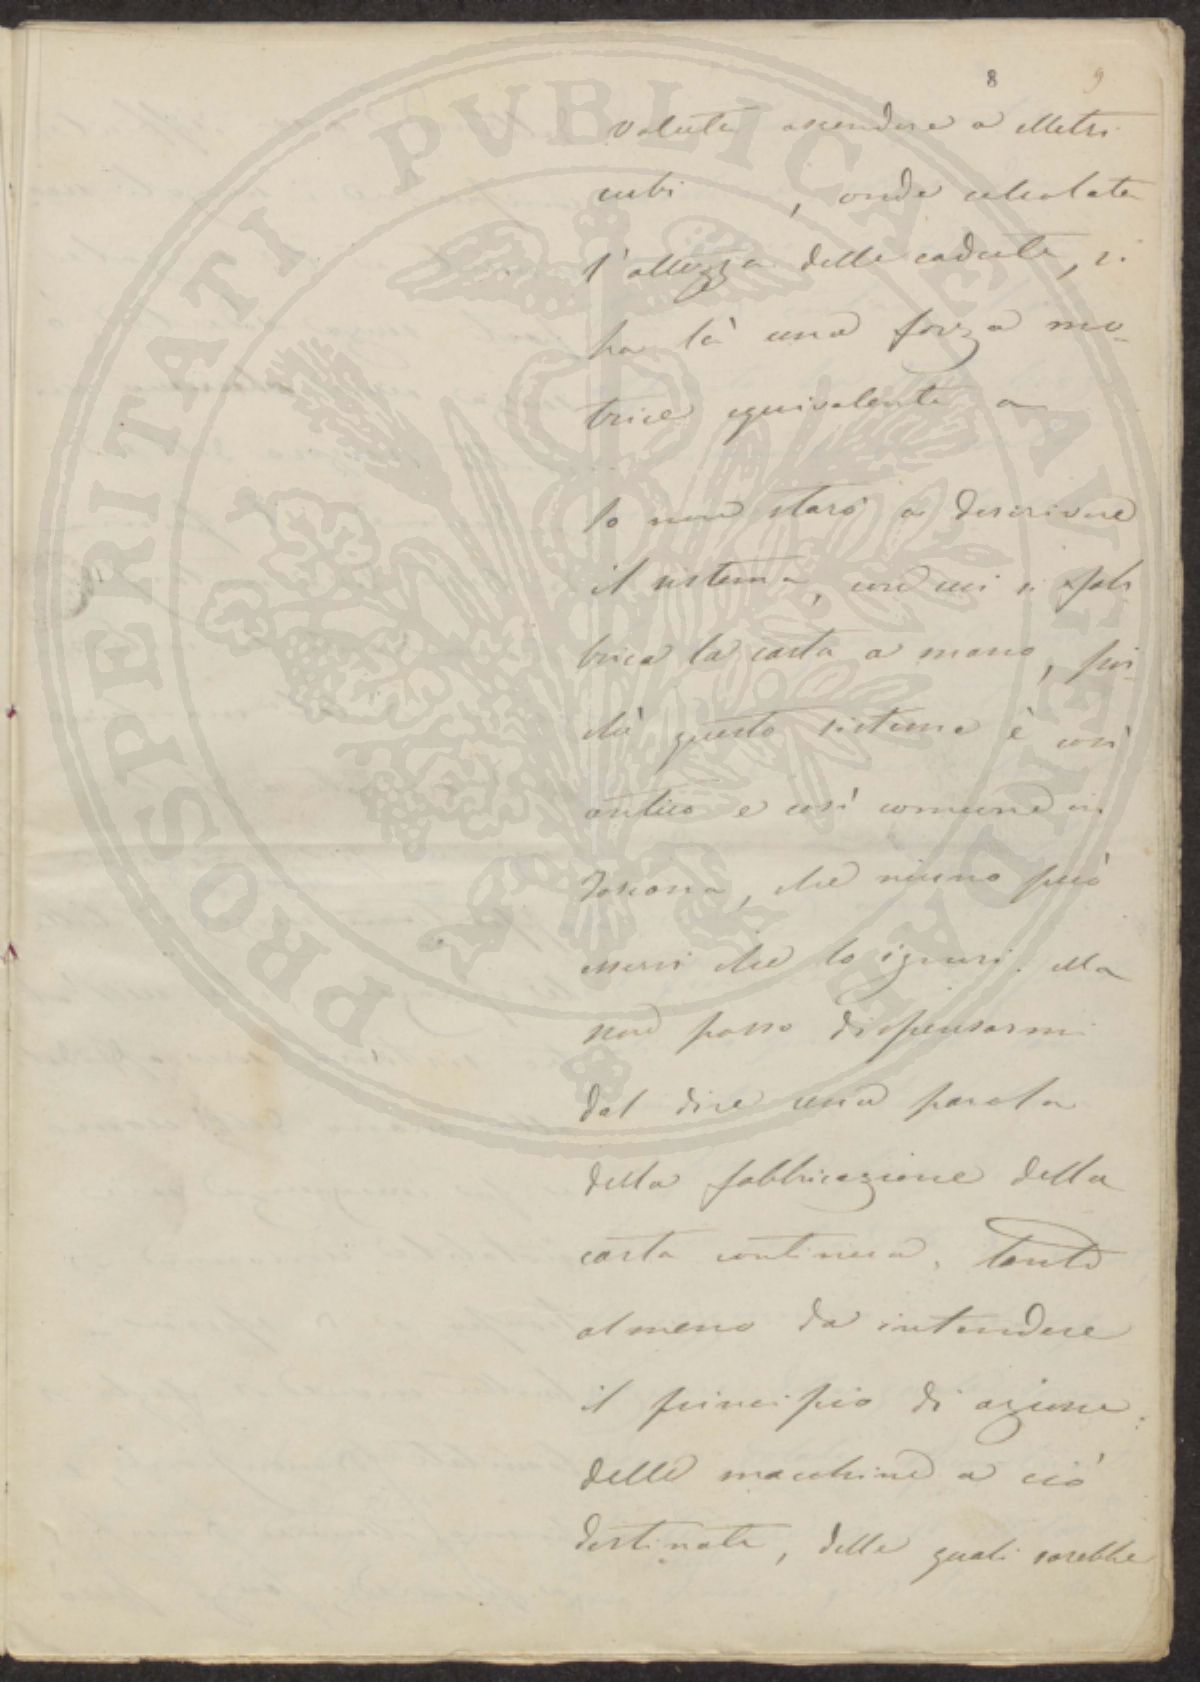 8 9
valuta ascendere a Metri
cubi , onde calcolata
l'altezza delle cadute, si
ha là una forza mo-
trice equivalente a
Io non starò a descrivere
il sistema, con cui si fab
brica la carta a mano, poi-
chè questo sistema è così
antico e così comune in
Toscana, che niuno può
esservi che lo ignori. Ma
non posso dispensarmi
dal dire una parola
della fabbricazione della
carta continua, tanto
almeno da intendere
il principio di azione
delle macchine a ciò
destinate, delle quali sarebbe
PROSPERITATI PVBLICAE AVGENDAE